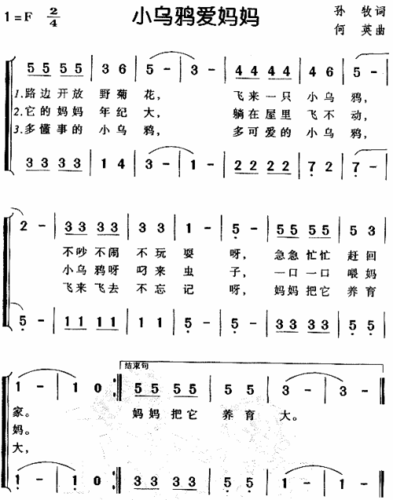 小乌鸦爱妈妈
1=F 2/4
孙 牧词
何 英曲
5 5 5 5 | 3 6 | 5 - | 3 - | 5 5 5 5 | 3 6 | 5 - | 5 -
1.路边开放 野菊 花， 飞来一只 小乌 鸦，
2.它的妈妈 年纪 大， 躺在屋里 飞不 动，
3.多懂事的 小乌 鸦， 多可爱的 小乌 鸦，
3 3 3 3 | 1 4 | 3 - | 1 - | 2 2 2 2 | 7 2 | 7 - | 7 -
2 - | 3 3 3 3 | 3 2 | 1 - | 5 - | 5 5 5 5 | 5 3
不吵不闹 不玩 耍 呀， 急急忙忙 赶回
小乌鸦呀 叼来 虫 子， 一口一口 喂妈
飞来飞去 不忘 记 呀， 妈妈把它 养育
5 - | 1 1 1 1 | 1 5 | 5 - | 5 - | 3 3 3 3 | 5 5
结束句
1 - | 1 0 | 5 5 5 5 | 5 5 | 3 - | 3 -
家。 妈妈把它 养育 大。
妈。
大，
1 - | 1 0 | 3 3 3 3 | 5 5 | 1 - | 1 -